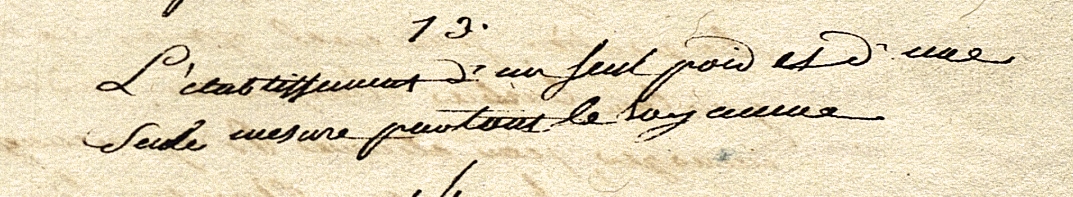 13.
L'établissement d'un seul poid et d'une
Seule mesure par tout le royaume